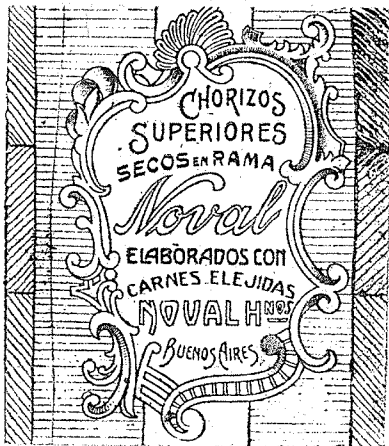 CHORIZOS
SUPERIORES
SECOS EN RAMA
Noval
ELABORADOS CON
CARNES ELEJIDAS
NOVAL HNOS
BUENOS AIRES